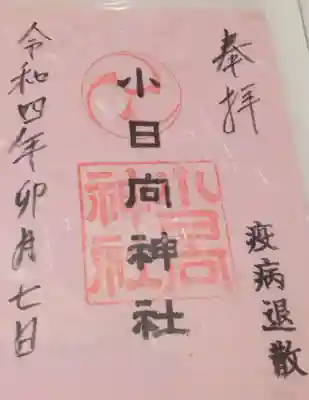 奉拝
疫病退散
小日向神社
令和四年卯月七日
小日向
神社